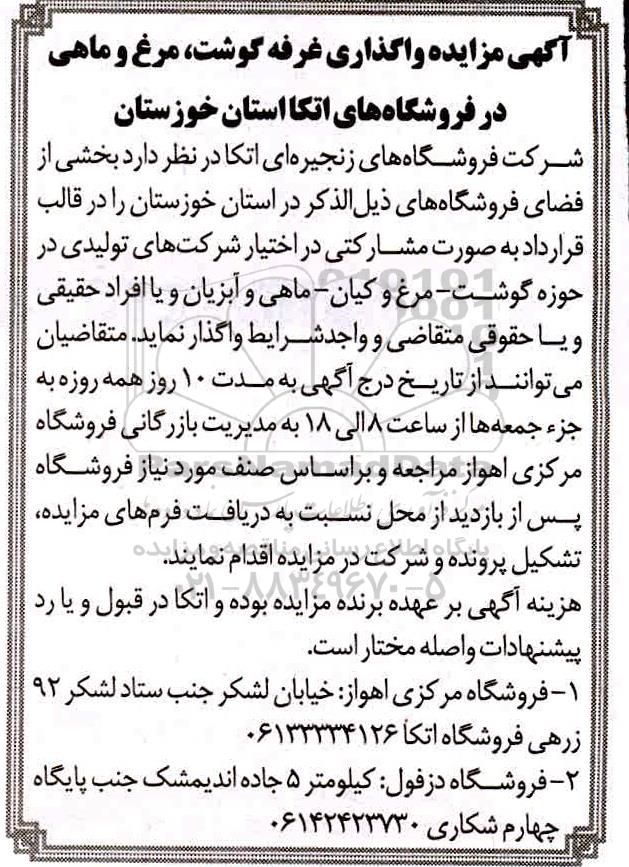 آگهی مزایده واگذاری غرفه گوشت، مرغ و ماهی
در فروشگاه‌های اتکا استان خوزستان
شرکت فروشگاه‌های زنجیره‌ای اتکا در نظر دارد بخشی از
فضای فروشگاه‌های ذیل‌الذکر در استان خوزستان را در قالب
قرارداد به صورت مشارکتی در اختیار شرکت‌های تولیدی در
حوزه گوشت- مرغ و کیان- ماهی و آبزیان و یا افراد حقیقی
و یا حقوقی متقاضی و واجد شرایط واگذار نماید. متقاضیان
می‌توانند از تاریخ درج آگهی به مدت ۱۰ روز همه روزه به
جزء جمعه‌ها از ساعت ۸ الی ۱۸ به مدیریت بازرگانی فروشگاه
مرکزی اهواز مراجعه و براساس صنف مورد نیاز فروشگاه
پس از بازدید از محل نسبت به دریافت فرم‌های مزایده،
تشکیل پرونده و شرکت در مزایده اقدام نمایند.
هزینه آگهی بر عهده برنده مزایده بوده و اتکا در قبول و یا رد
پیشنهادات واصله مختار است.
۱- فروشگاه مرکزی اهواز: خیابان لشکر جنب ستاد لشکر ۹۲
زرهی فروشگاه اتکا ۰۶۱۳۳۳۳۴۱۲۶
۲- فروشگاه دزفول: کیلومتر ۵ جاده اندیمشک جنب پایگاه
چهارم شکاری ۰۶۱۴۲۴۲۳۷۳۰
ParsNamadData
پایگاه اطلاع رسانی مناقصه و مزایده
۰۲۱-۸۸۳۴۹۶۷۰-۵